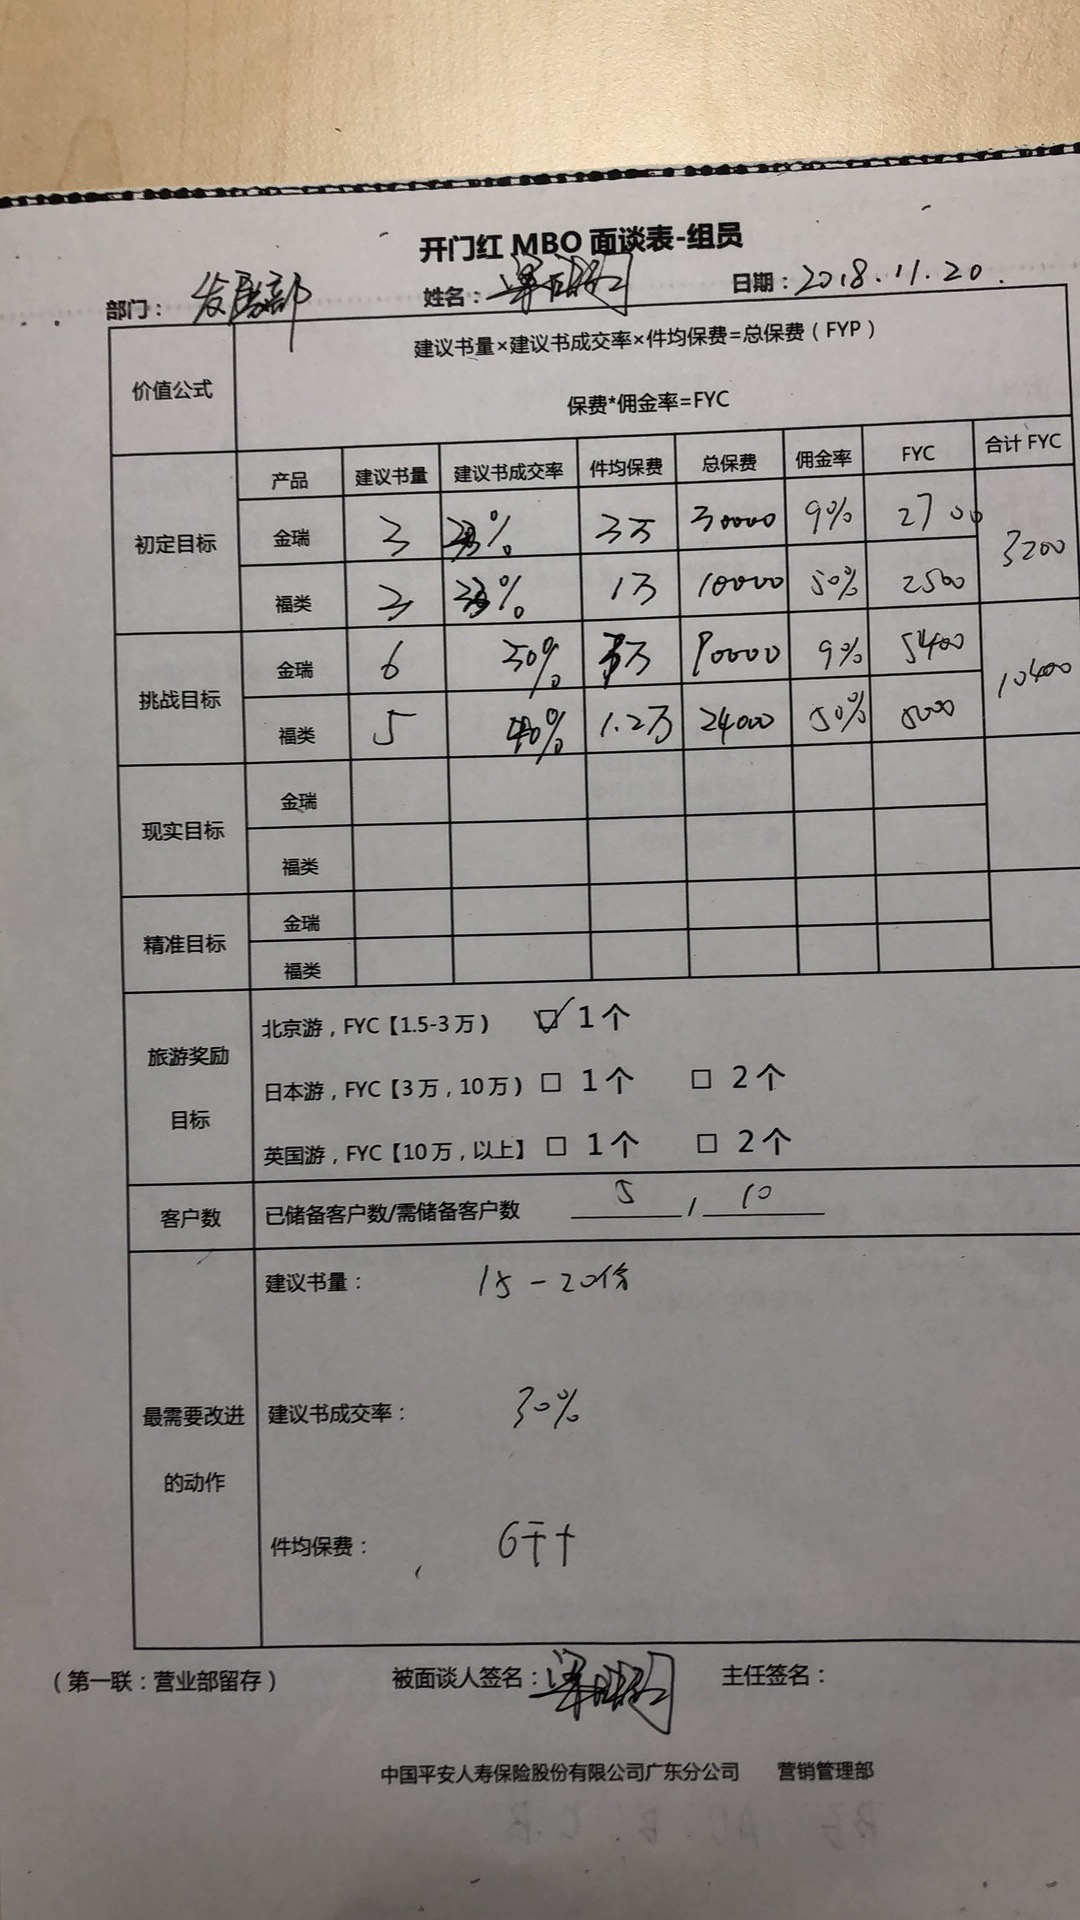 开门红 MBO 面谈表-组员
部门： 发展部 姓名： 日期：2018.11.20.
价值公式 建议书量×建议书成交率×件均保费=总保费（FYP）
保费*佣金率=FYC
产品 建议书量 建议书成交率 件均保费 总保费 佣金率 FYC 合计 FYC
初定目标 金瑞 3 % 3万 30000 9% 2700 3200
福类 3 % 1万 10000 50% 2500
挑战目标 金瑞 6 30% 万 90000 9% 5400 10400
福类 5 40% 1.2万 24000 50% 5000
现实目标 金瑞
福类
精准目标 金瑞
福类
旅游奖励目标 北京游，FYC【1.5-3万） ☑ 1个
日本游，FYC【3万，10万）□ 1个 □ 2个
英国游，FYC【10万，以上】□ 1个 □ 2个
客户数 已储备客户数/需储备客户数 5 / 10
最需要改进的动作 建议书量： 15-20份
建议书成交率： 30%
件均保费： 6千+
（第一联：营业部留存） 被面谈人签名： 主任签名：
中国平安人寿保险股份有限公司广东分公司 营销管理部